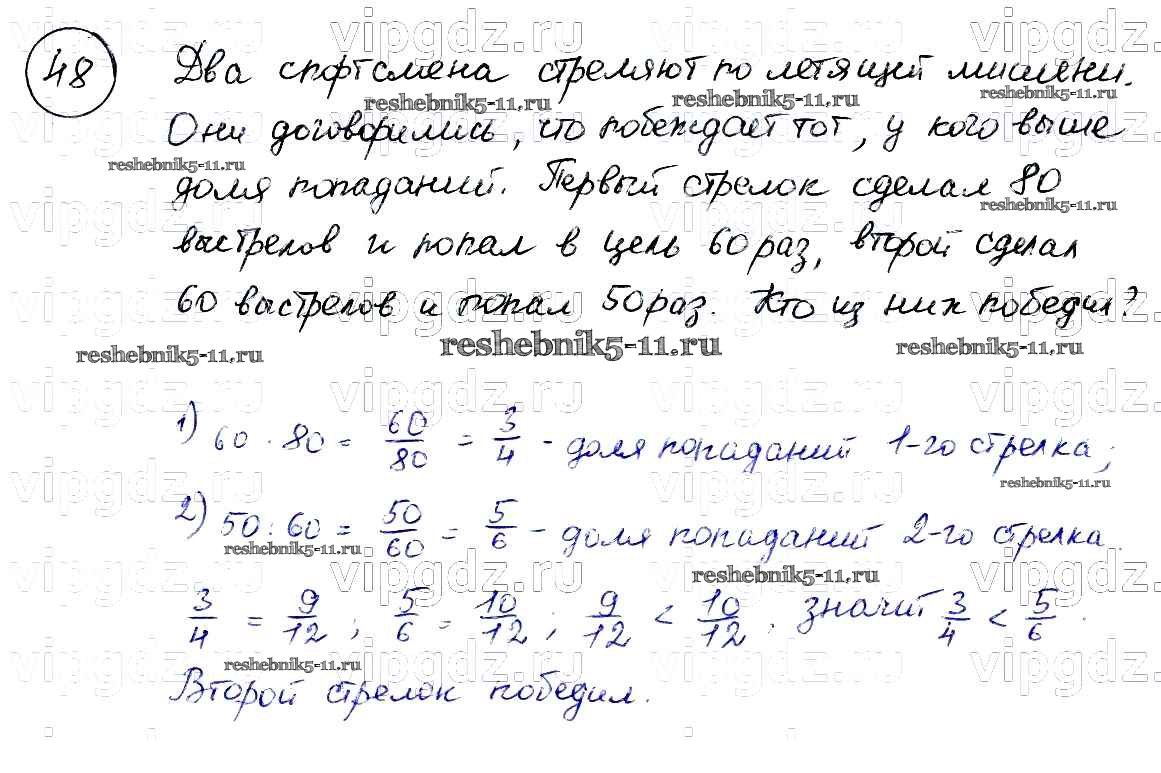 48 Два спортсмена стреляют по летящей мишени.
Они договорились, что побеждает тот, у кого выше
доля попаданий. Первый стрелок сделал 80
выстрелов и попал в цель 60 раз, второй сделал
60 выстрелов и попал 50 раз. Кто из них победил?
1) 60 : 80 = 60/80 = 3/4 - доля попаданий 1-го стрелка;
2) 50 : 60 = 50/60 = 5/6 - доля попаданий 2-го стрелка.
3/4 = 9/12; 5/6 = 10/12; 9/12 < 10/12. значит 3/4 < 5/6.
Второй стрелок победил.
vipgdz.ru
reshebnik5-11.ru